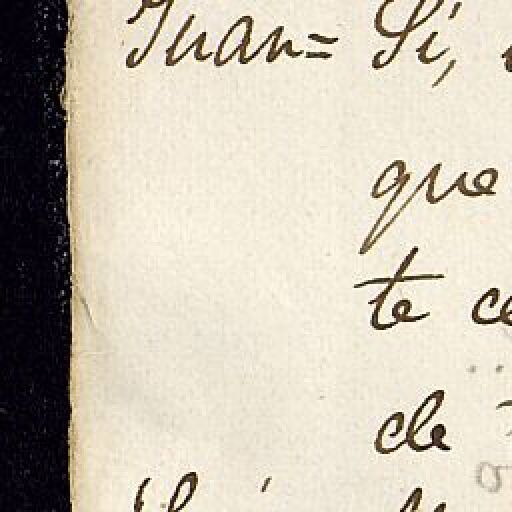 Juan= Sí,
que
te
de